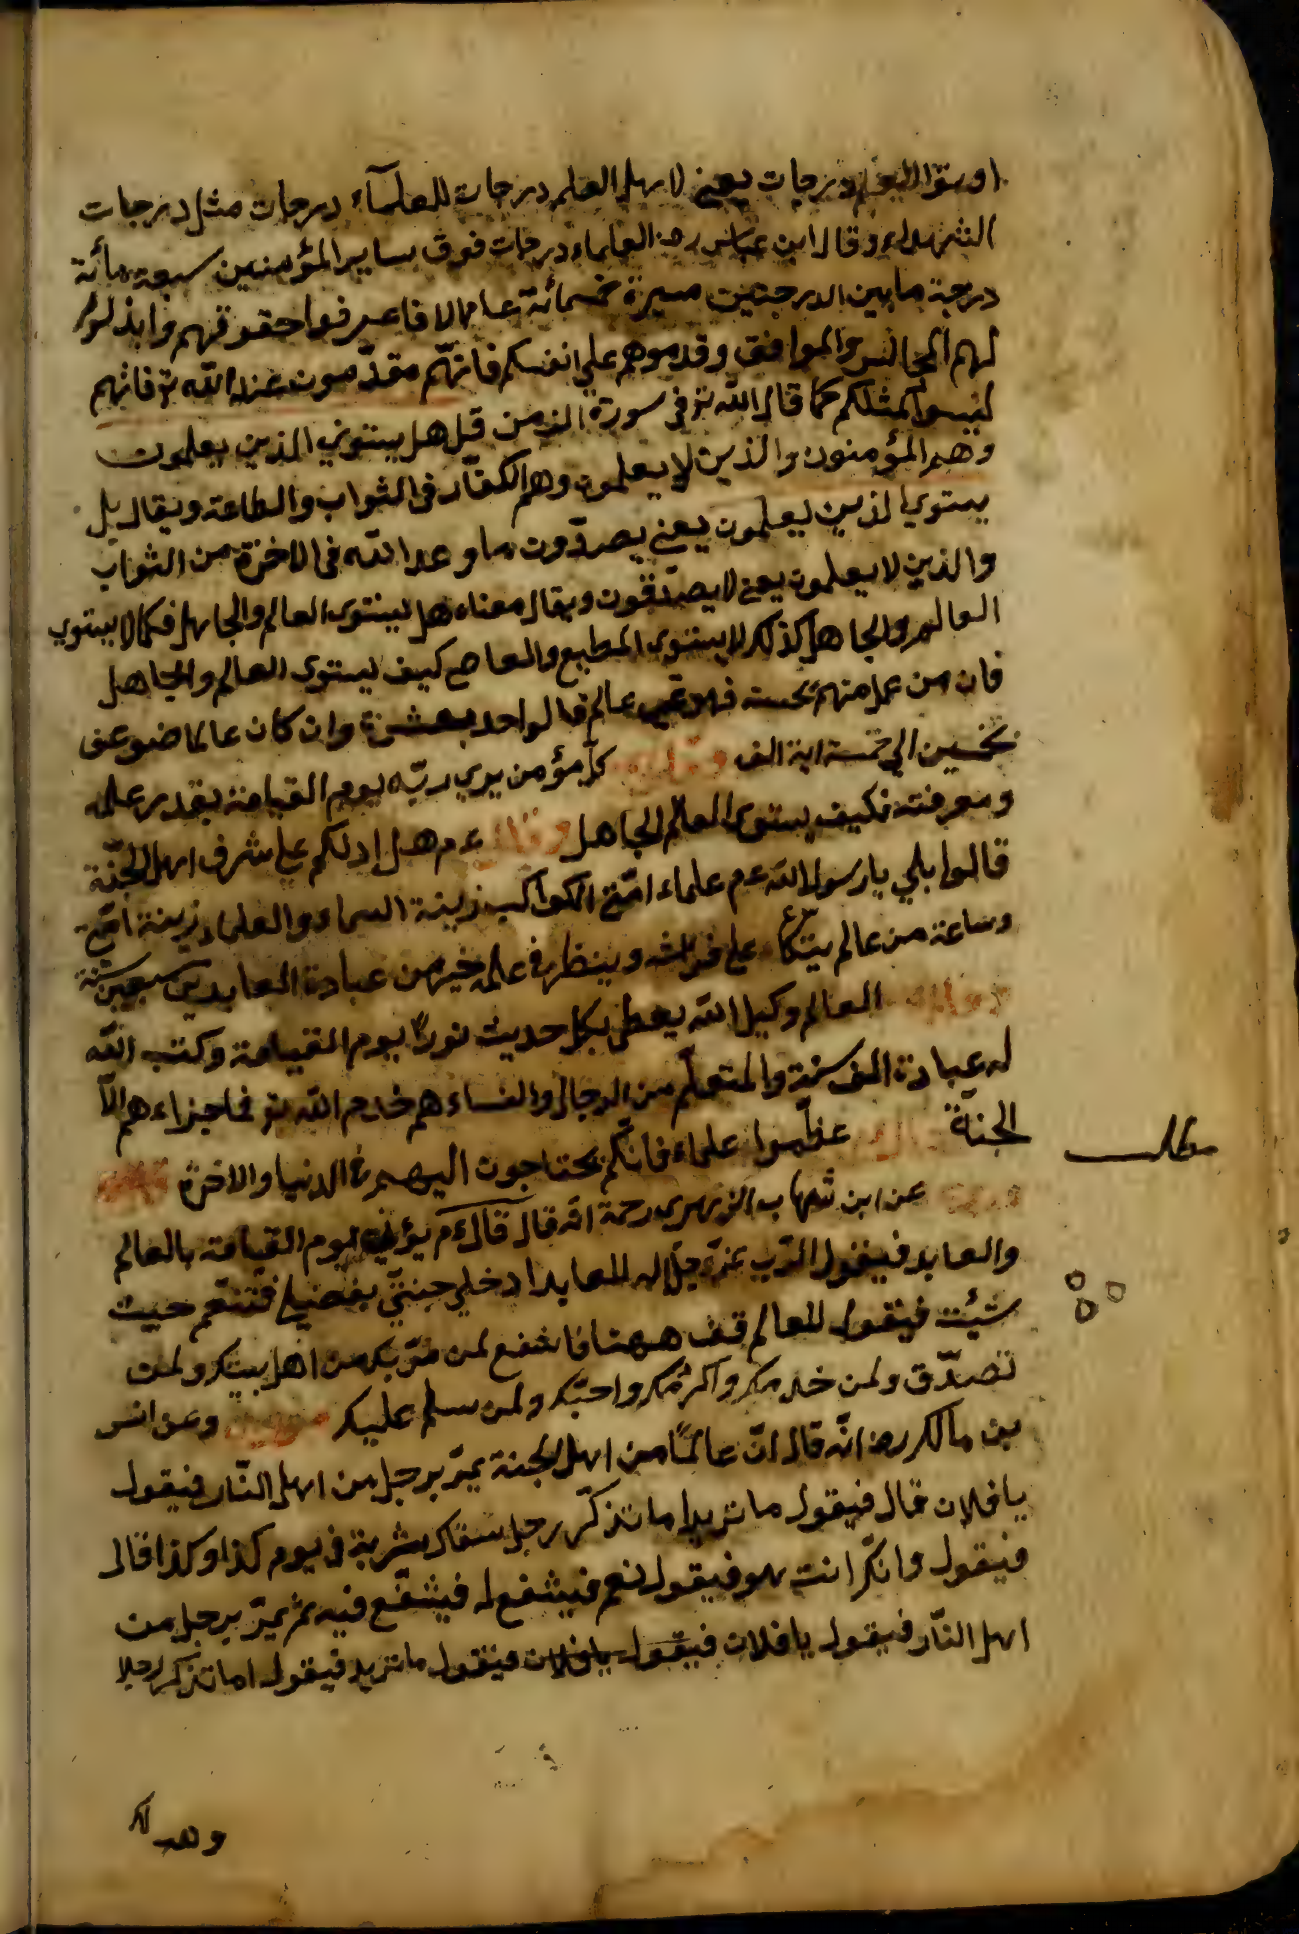 اوتوا العلم درجات يعني لاهل العلم درجات للعلمآء درجات مثل درجات
الشهداء وقال ابن عباس رضه العلماء درجات فوق ساير المؤمنين سبعة مائة
درجة ما بين الدرجتين مسيرة خمسمائة عام الا فاعرفوا حقوقهم وابذلوا
لهم المجالس والموافق وقدموهم علي انفسكم فانّهم مقدّمون عند الله تع فانهم
ليسوا كمثلكم كما قال الله تع في سورة الزمن قل هل يستوي الذين يعلمون
وهم المؤمنون والذين لا يعلمون وهم الكفّار في الثواب والطاعة ويقال بل
يستوي الذين يعلمون يعني يصدّون ما وعد الله في الاخرة من الثواب
والذين لا يعلمون يعني لا يصدّقون ويقال معناه هل يستوي العالم والجاهل فكما لا يستوي
العالم والجاهل كذلك لا يستوي المطيع والعاصي كيف يستوي العالم والجاهل
فان من عمل منهم بحسنة فهو غير عالم فالواحد بعشرة وان كان عالما ضوعف
بخمسين الي خمسة الف كلّ مؤمن يري ربّه يوم القيامة بقدر علمه
ومعرفته فكيف يستوي العالم الجاهل وقال ءم هل ادلكم علي شرف اهل الجنّة
قالوا بلي يا رسول الله ءم علماء امّتي الكواكب زينة السماء والعلماء زينة امّتي
وساعة من عالم يتكأ علي فراشه وينظر في علمه خير من عبادة العابدين سبعين سنة
العالم وكيل الله يعطي بكل حديث نورًا يوم القيامة وكتب الله
له عبادة الف سنة والمتعلّم من الرجال والنساء هم خادم الله تع فما جزاءهم الّا
الجنّة عظّموا علماء فانّكم تحتاجون اليهم في الدنيا والاخرة
مطلب
عن ابن شهاب الزهري رحمة الله قال قال ءم يؤتي يوم القيامة بالعالم
والعابد فيقول الرّب عزّ وجلّ له للعابد ادخل جنّتي بفضلي فتنعّم حيث
شئت فيقول للعالم قف ههنا فاشفع لمن مرّ بك من اهل بيتك ولمن
تصدّق ولمن خدمك واكرمك واحبّك ولمن سلم عليك وعن انس
بن مالك رضه انّه قال انّ عالمًا من اهل الجنة يمرّ برجل من اهل النّار فيقول
يا فلان قال فيقول ما تريد اما تذكّر رجل سقاك بشربة في يوم كذا وكذا قال
فيقول وانّك انت هو فيقول نعم فيشفع له فيشفّع فيه ثم يمرّ برجل من
اهل النّار فيقول يا فلان فيقول يا فلان فيقول ما تريد فيقول اما تذكر رجلا
وهب لك